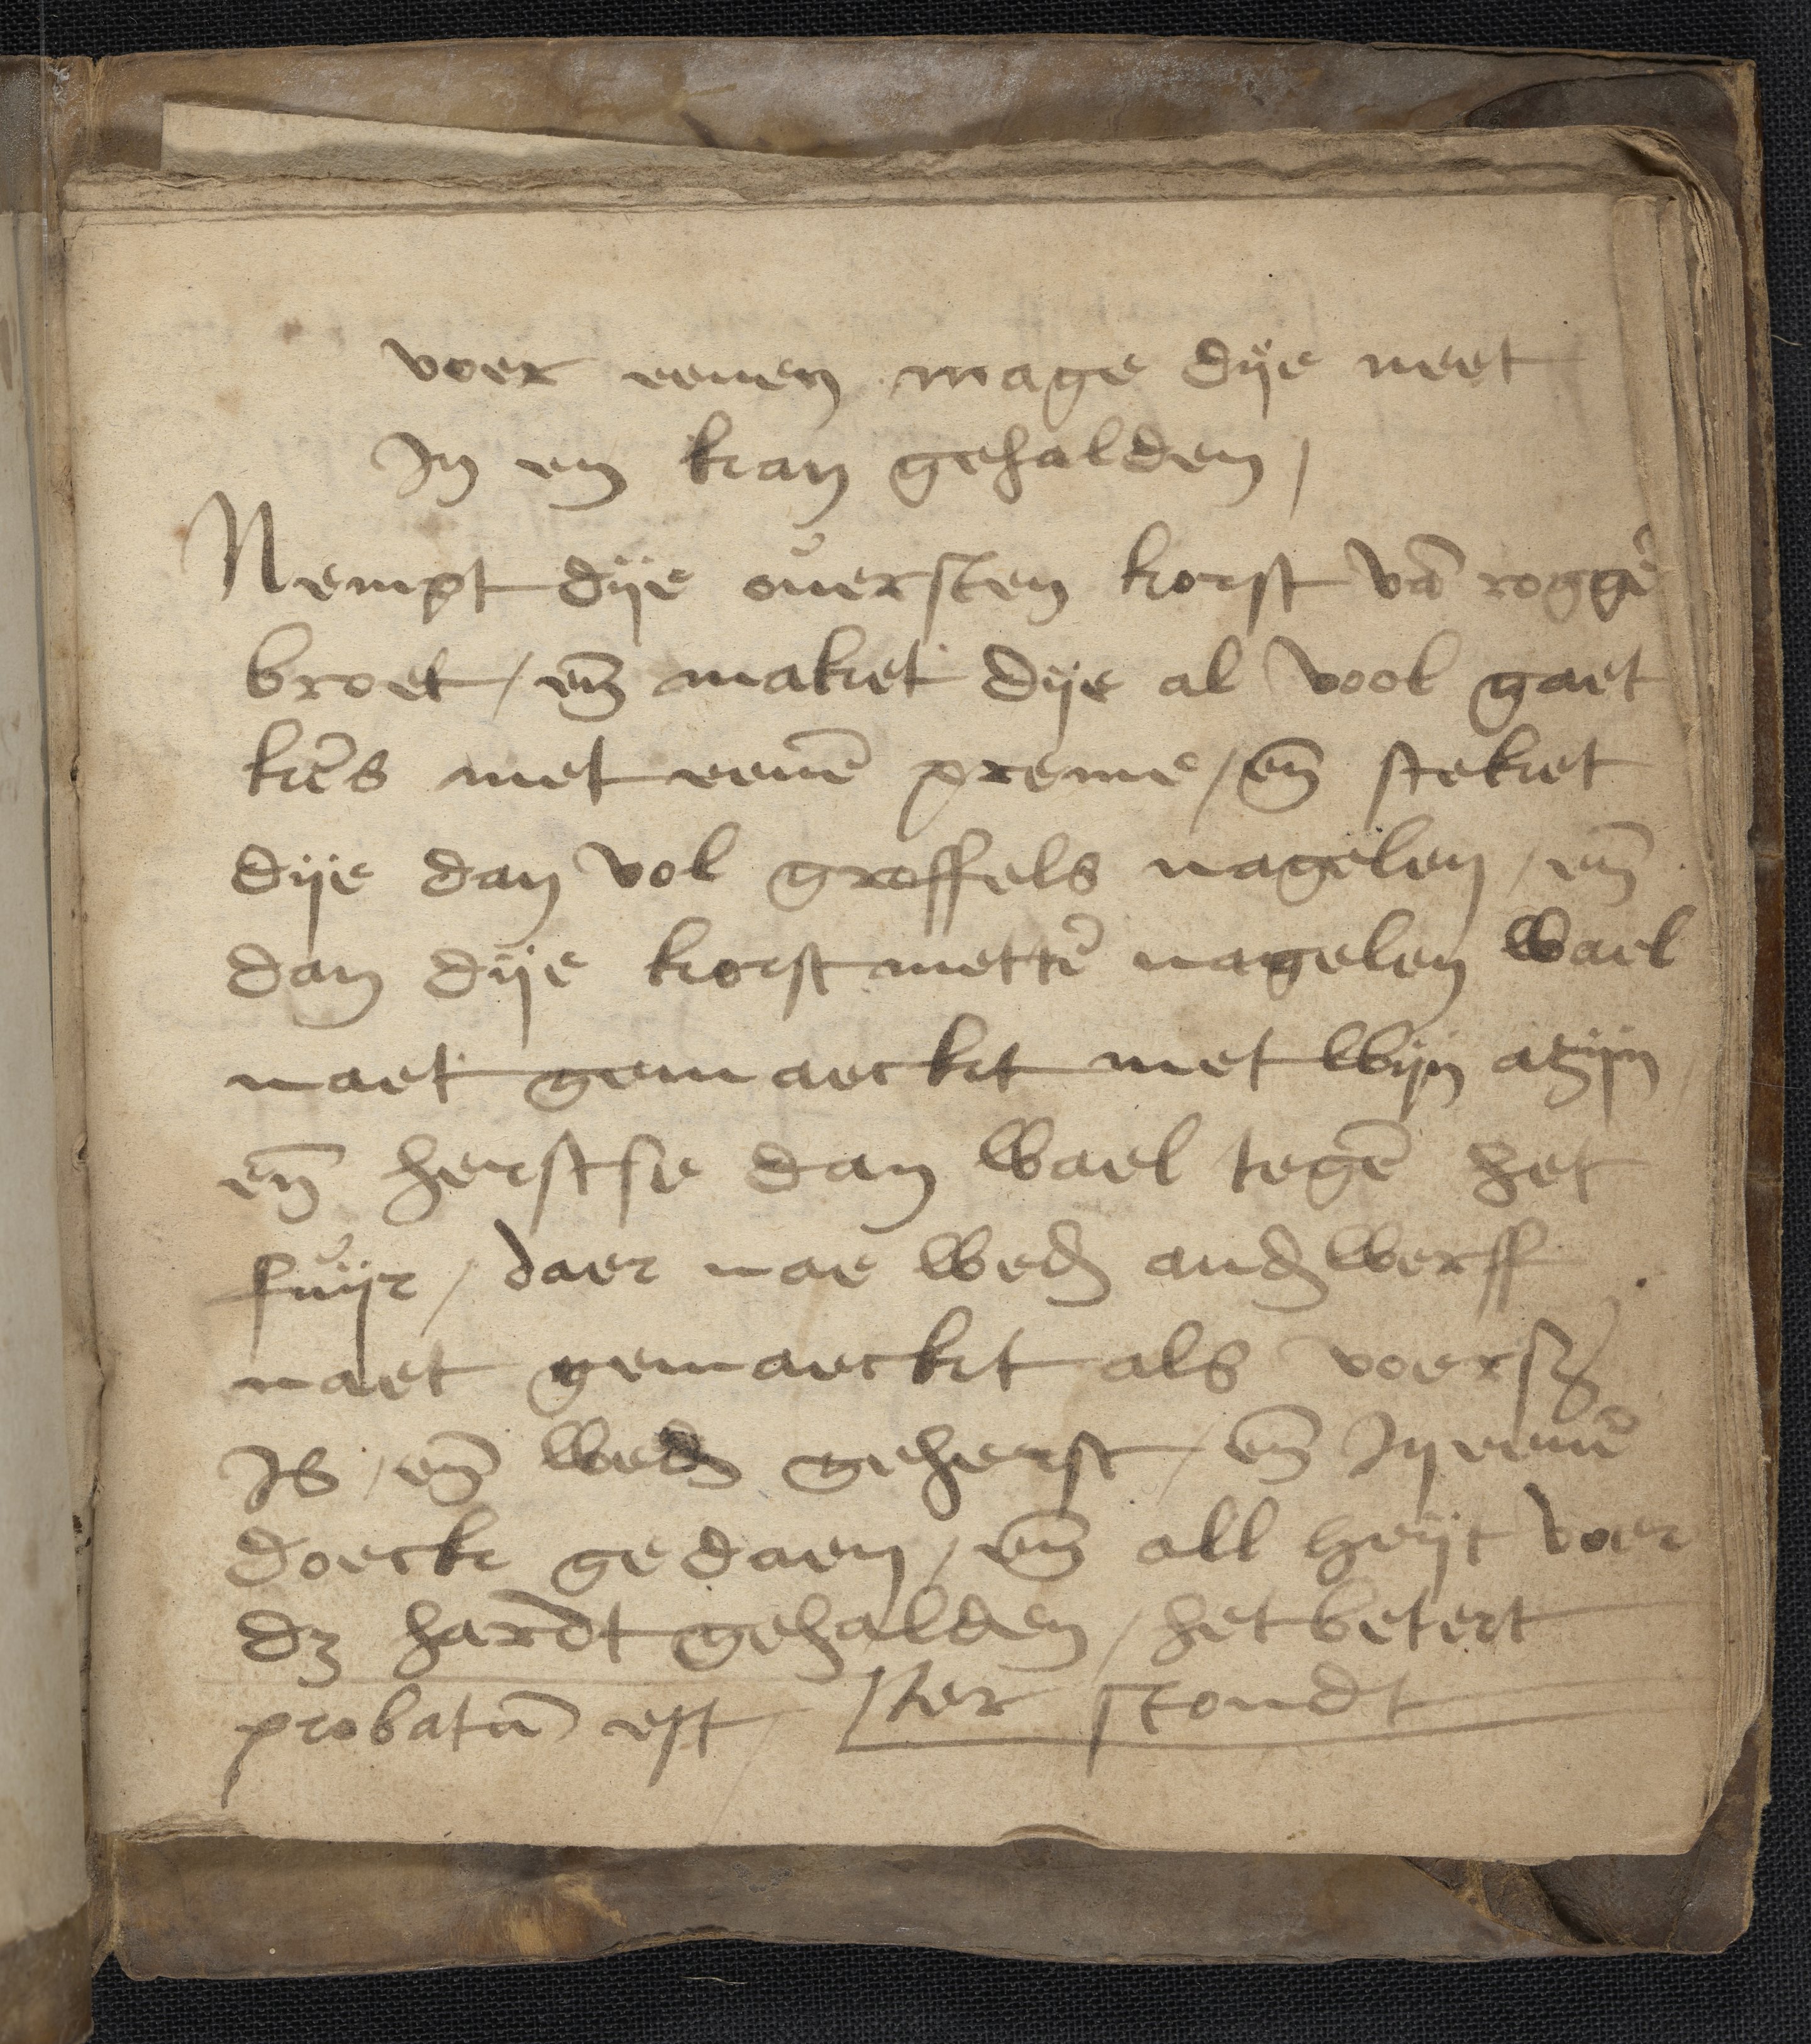 voer eenen mage dÿe neet
In en kan gehalden /
Nempt dÿe ouersten korst vā roggē
broet / en̄ maket dÿe al vool gaet
kēs met eenē preme / en̄ steket
dÿe dan vol groffels nagelen / en̄
dan dÿe korst mettē nagelen wael
naet gemaeckt met wijn azijn
en̄ herst se dan wael tegē het
fuÿr / daer nae wed̄ and̄werff
naet gemaeckt als voersȝ
Is / en̄ wed̄ geherst / en̄ In eenē
doeck gedaen / en̄ all heÿt voer
dȝ hardt gehalden / het betert
probatū est / ter stondt